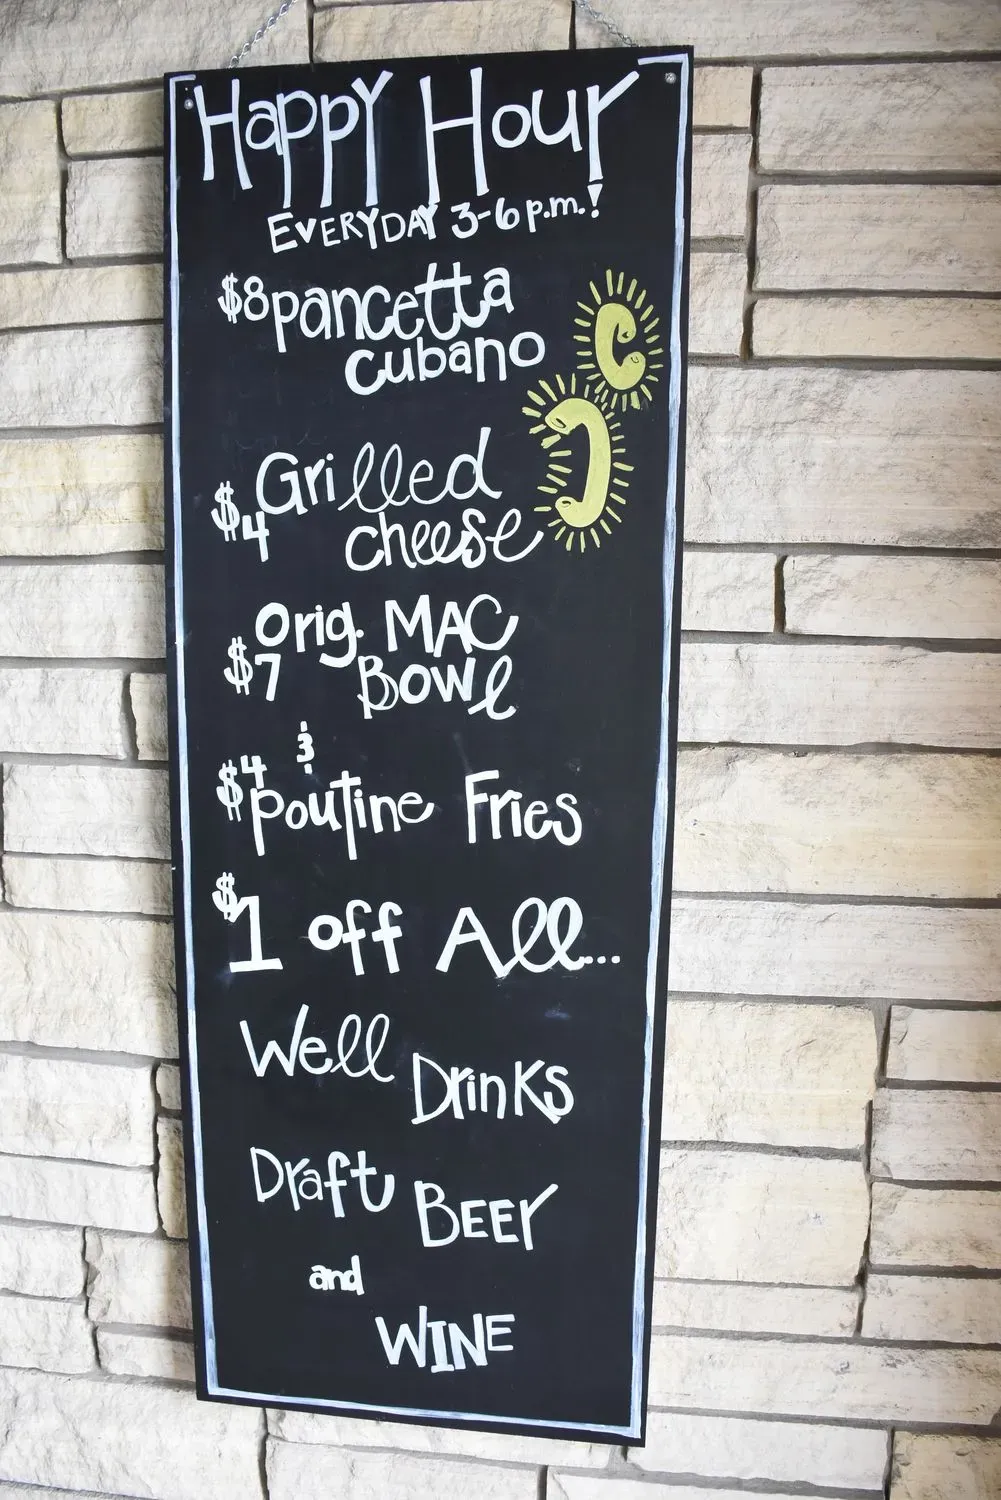 Happy Hour
EVERYDAY 3-6 p.m.!
$8 pancetta
cubano
$4 Grilled
cheese
Orig. MAC
$7 Bowl
&
$4 Poutine Fries
$1 off All...
Well
Drinks
Draft
BEER
and
WINE